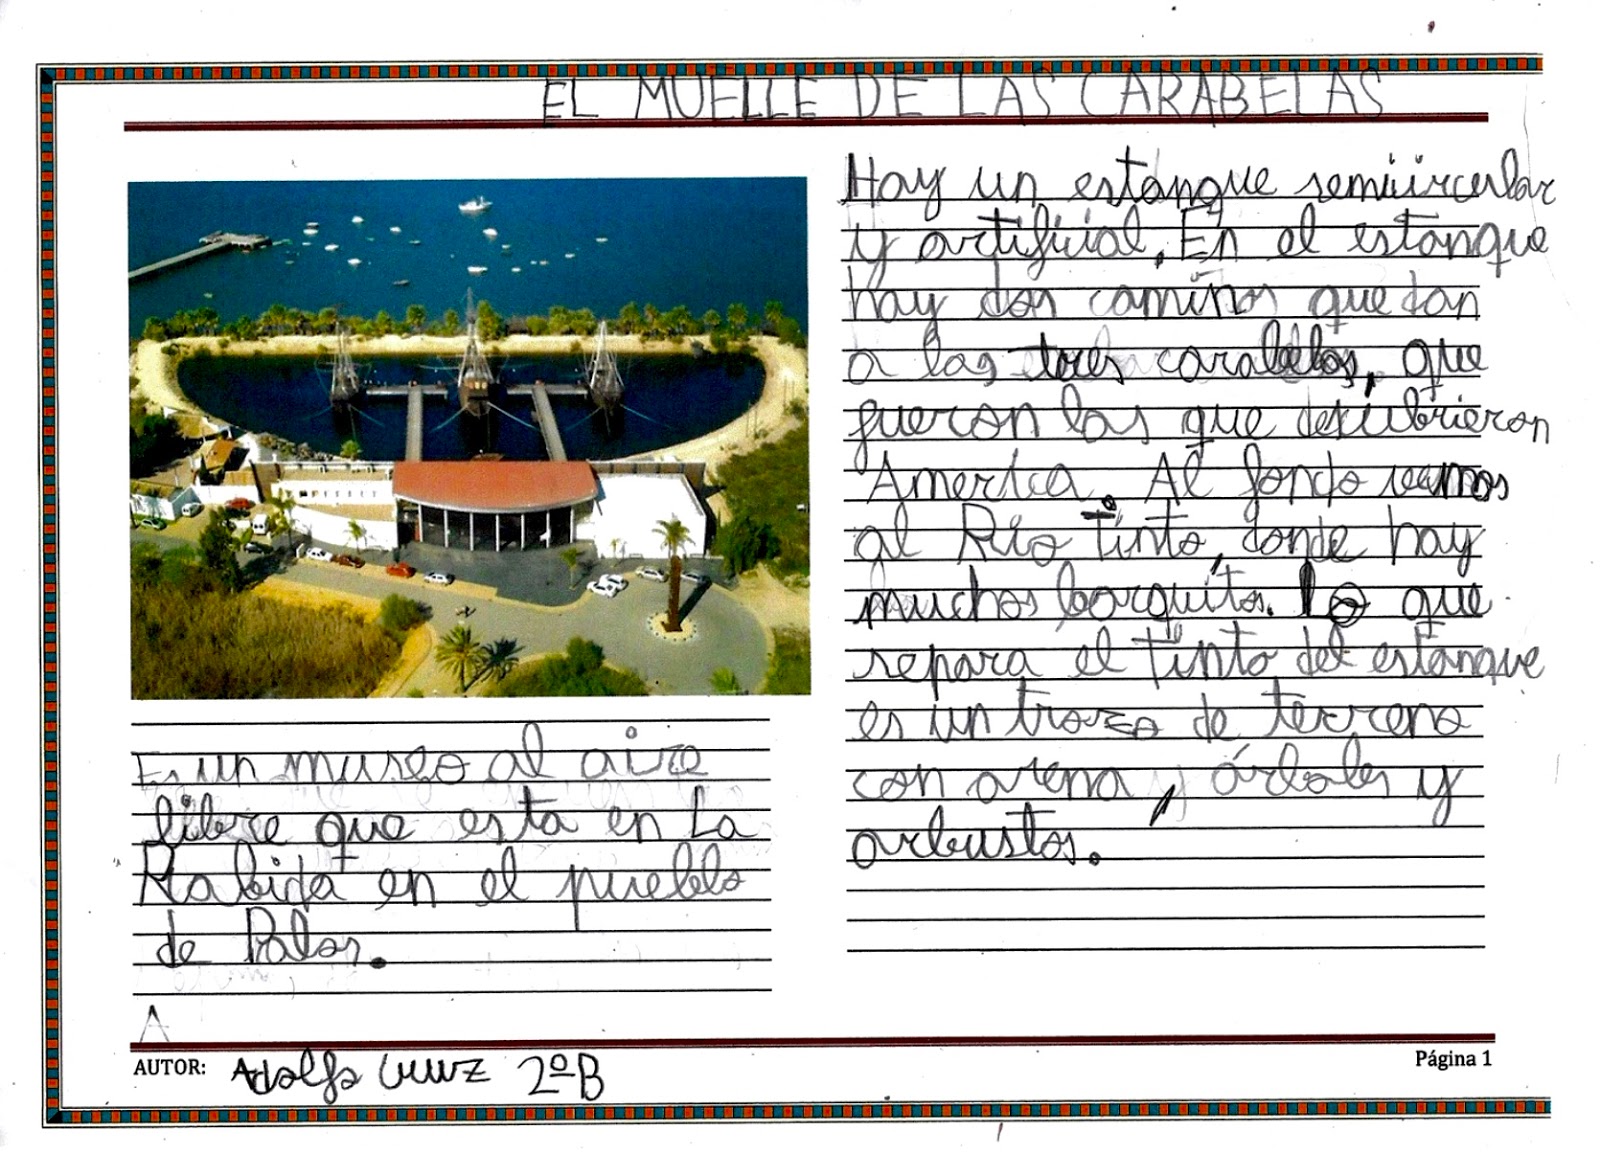 EL MUELLE DE LAS CARABELAS
Es un museo al aire
libre que esta en La
Rabida en el pueblo
de Palos.
A
Hay un estanque semicircular
y artificial, En el estanque
hay dos caminos que dan
a las tres carabelas, que
fueron las que descubrieron
America. Al fondo vemos
al Río Tinto, donde hay
muchos barquitos. lo que
separa el Tinto del estanque
es un trozo de terreno
con arena, árboles y
arbustos.
AUTOR: Adolfo Cruz 2ºB
Página 1